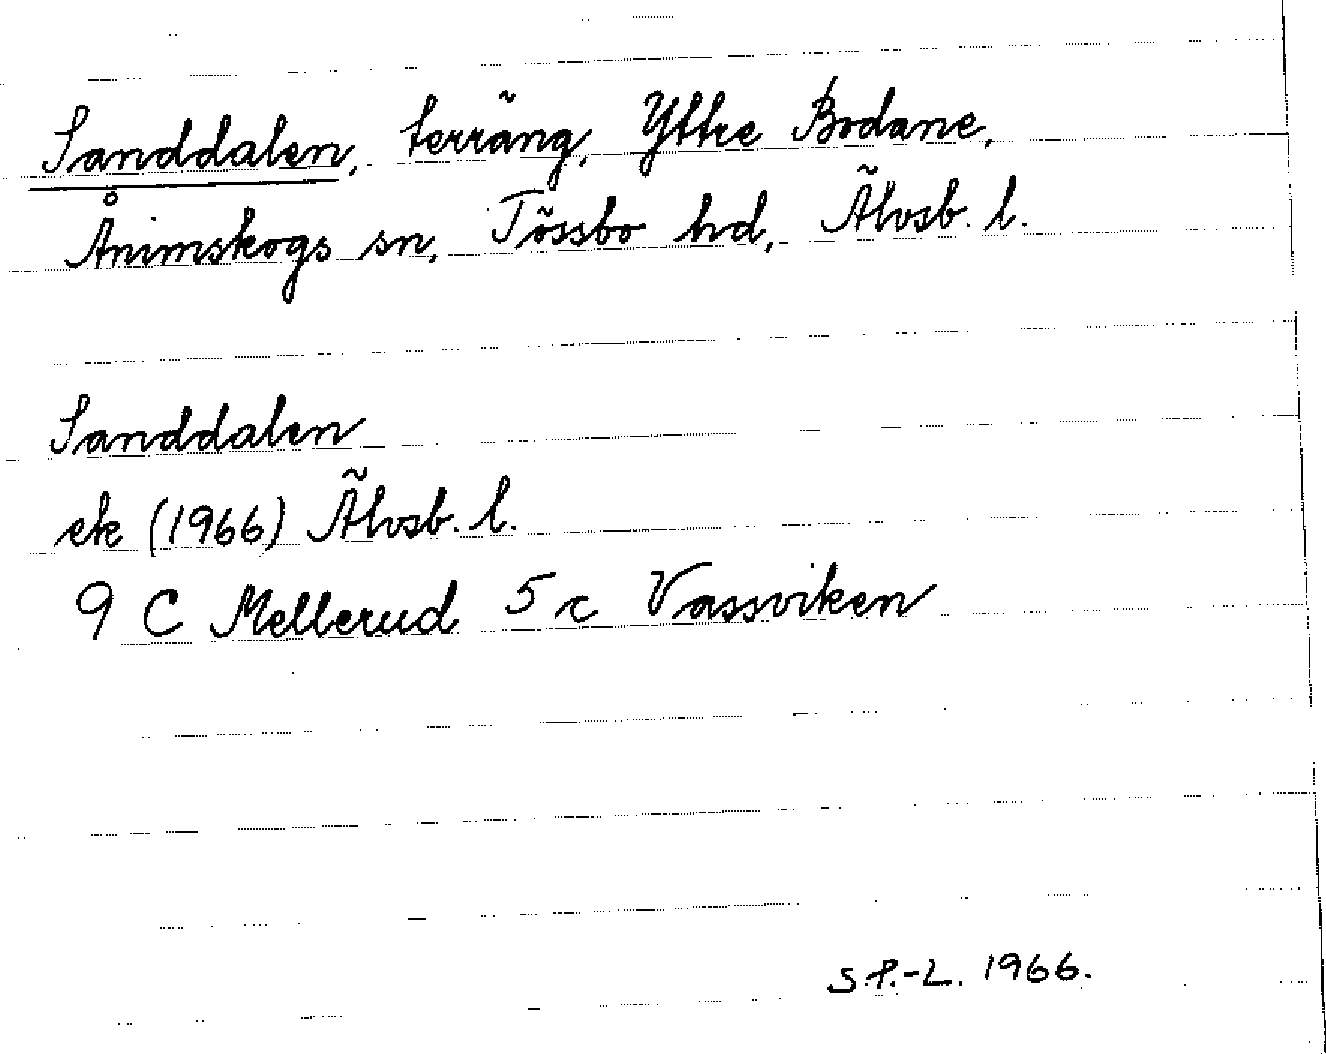 Sanddalen, terräng, Yttre Bodane,
Ånimskogs sn, Tössbo hd, Älvsb. l.
Sanddalen
ek (1966) Älvsb. l.
9 C Mellerud 5 c Vassviken
S P.-L. 1966.